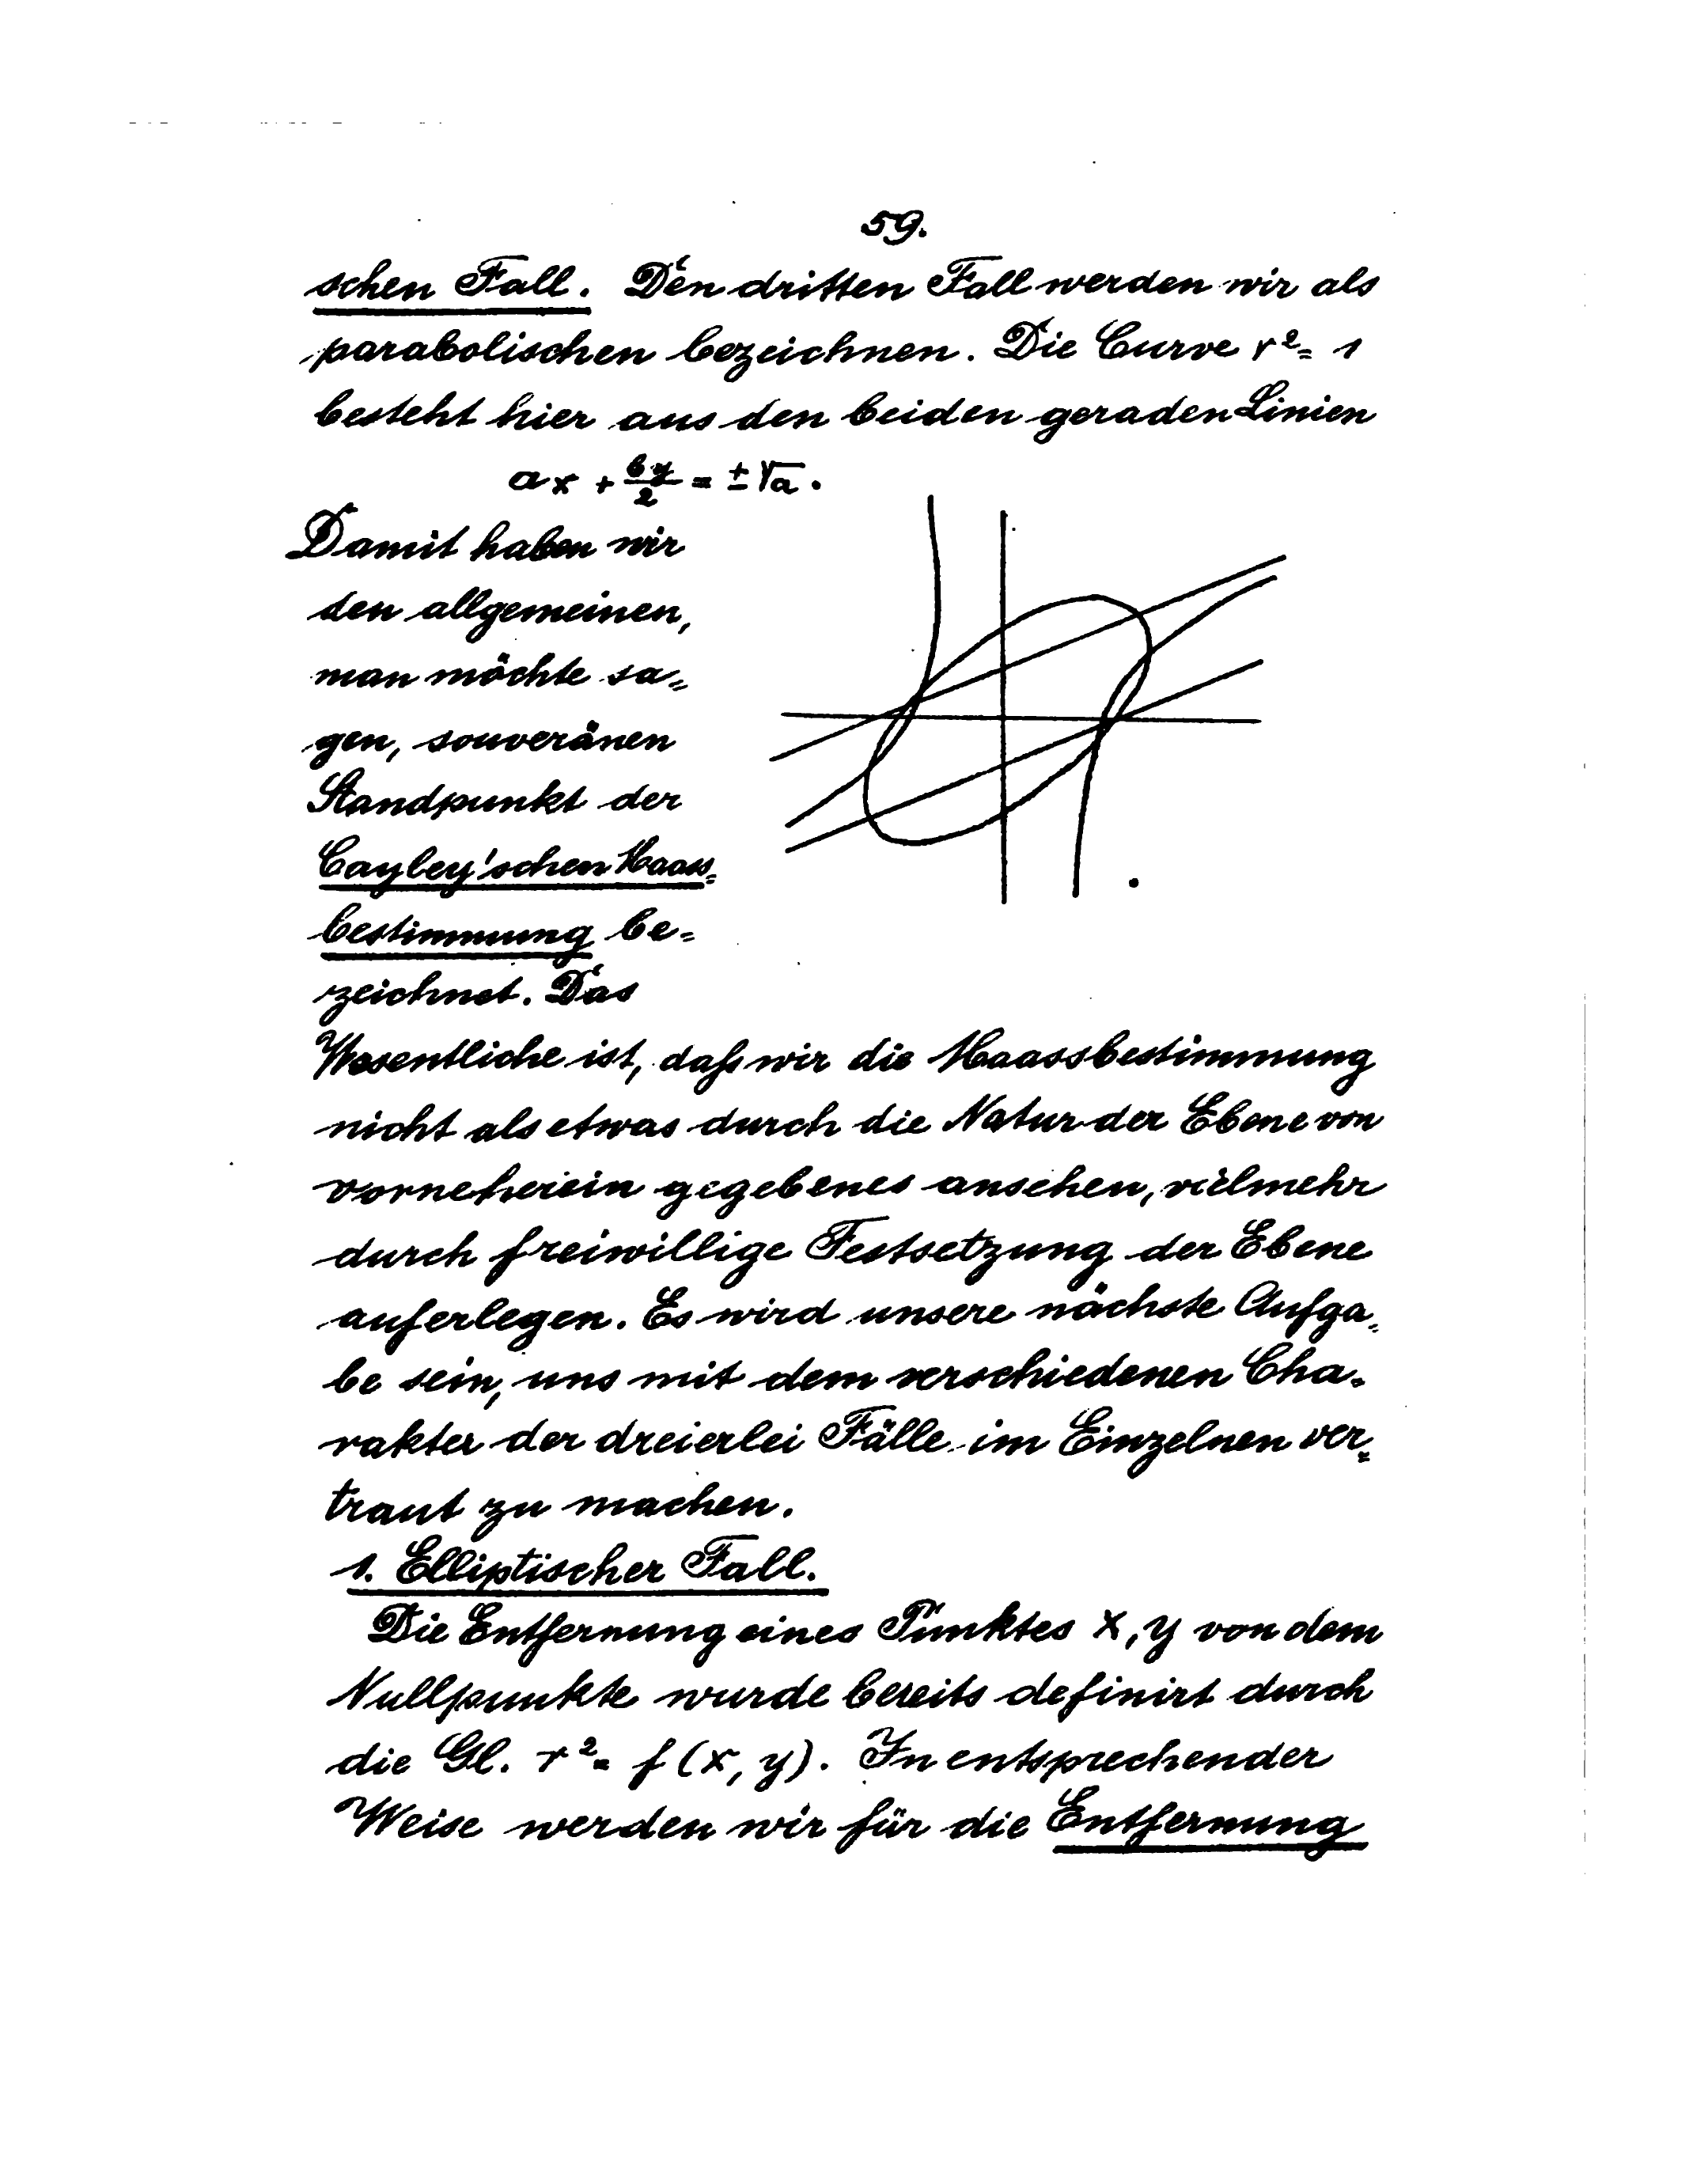 59.
schen Fall. Den dritten Fall werden wir als
parabolischen bezeichnen. Die Curve r² = 1
besteht hier aus den beiden geraden Linien
ax + by/2 = ±√a.
Damit haben wir
den allgemeinen,
man möchte sa=
gen, souveränen
Standpunkt der
Cayley'schen Maass=
bestimmung be=
zeichnet. Das
Wesentliche ist, daß wir die Maassbestimmung
nicht als etwas durch die Natur der Ebene von
vorneherein gegebenes ansehen, vielmehr
durch freiwillige Festsetzung der Ebene
auferlegen. Es wird unsere nächste Aufga=
be sein, uns mit dem verschiedenen Cha=
rakter der dreierlei Fälle im Einzelnen ver=
traut zu machen.
1. Elliptischer Fall.
Die Entfernung eines Punktes x, y von dem
Nullpunkte wurde bereits definirt durch
die Gl. r² = f (x, y). In entsprechender
Weise werden wir für die Entfernung